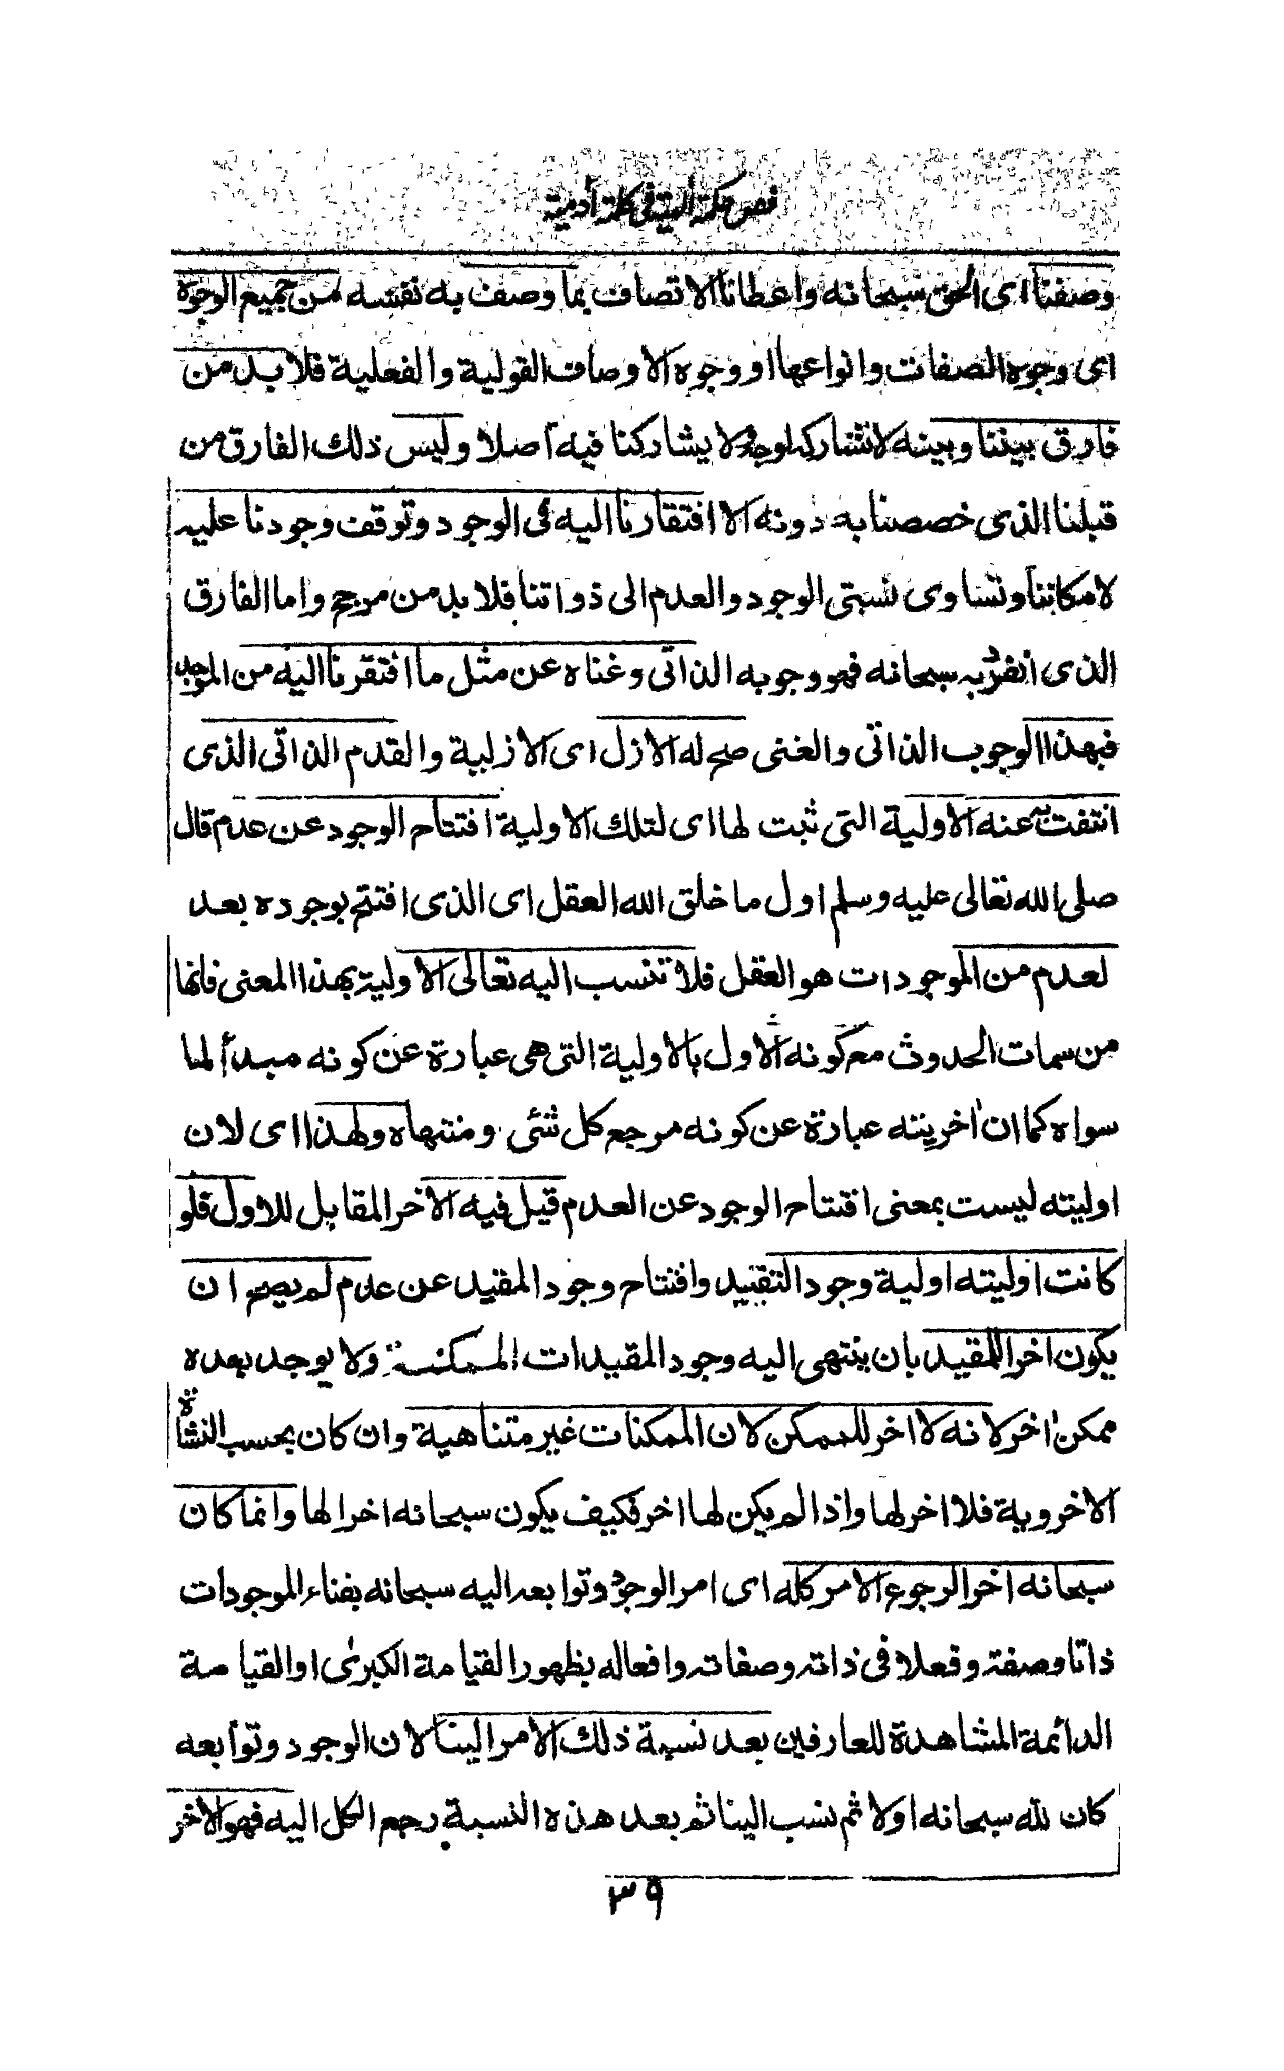 فص حكمة الهية في كلمة آدمية
وصفنا اى الحق سبحانه واعطانا الاتصاف بما وصف به نفسه من جميع الوجوه
اى وجوه الصفات وانواعها او وجوه الاوصاف القولية والفعلية فلا بد من
فارق بيننا وبينه لا نشاركه لا يشاركنا فيه أصلا وليس ذلك الفارق من
قبلنا الذى خصصنا به دونه الا افتقارنا اليه فى الوجود وتوقف وجودنا عليه
لامكاننا وتساوى نسبتى الوجود والعدم الى ذواتنا فلا بد من مرجح واما الفارق
الذى انفرد به سبحانه فهو وجوبه الذاتى وغناه عن مثل ما افتقرنا اليه من الموجد
فبهذا الوجوب الذاتى والغنى صح له الازل اى الازلية والقدم الذاتى الذى
انتفت به عنه الاولية التى ثبت لها اى لتلك الاولية افتتاح الوجود عن عدم قال
صلى الله تعالى عليه وسلم اول ما خلق الله العقل اى الذى افتتح بوجوده بعد
لعدم من الموجودات هو العقل فلا تنسب اليه تعالى الاولية بهذا المعنى فانها
من سمات الحدوث مع كونه الاول بالاولية التى هى عبارة عن كونه مبدأ لما
سواه كما ان اخريته عبارة عن كونه مرجع كل شئى ومنتهاه ولهذا اى لان
اوليته ليست بمعنى افتتاح الوجود عن العدم قيل فيه الاخر المقابل للاول فلو
كانت اوليته اولية وجود التقييد وافتتاح وجود المقيد عن عدم لم يصح ان
يكون اخرا للمقيد بان ينتهى اليه وجود المقيدات الممكنة ولا يوجد بعده
ممكن اخر لانه لا اخر للممكن لان الممكنات غير متناهية وان كان بحسب النشأة
الاخروية فلا اخر لها واذا لم يكن لها اخر فكيف يكون سبحانه اخرا لها وانما كان
سبحانه اخرا لرجوع الامر كله اى امر الوجود وتوابعه اليه سبحانه بفناء الموجودات
ذاتا وصفة وفعلا فى ذاته وصفاته وافعاله بظهور القيامة الكبرى او القيامة
الدائمة المشاهدة للعارفين بعد نسبة ذلك الامر الينا لان الوجود وتوابعه
كان لله سبحانه اولا ثم نسب الينا ثم بعد هذه النسبة رجع الكل اليه فهو الاخر
٣٩